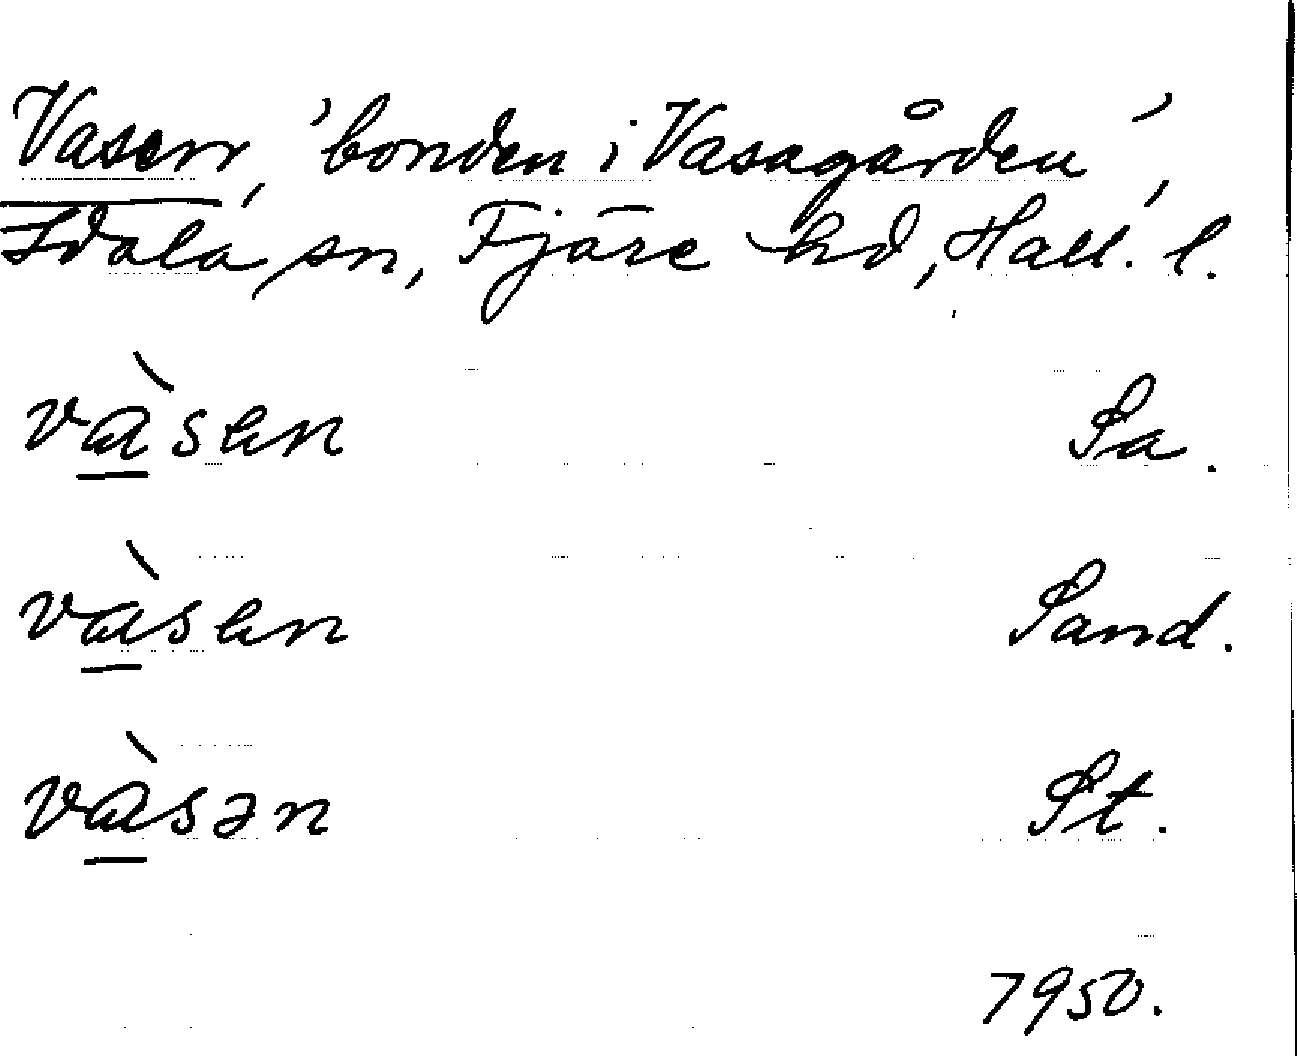 Vasen, 'bonden i Vasagården',
Idala sn, Fjäre hd, Hall. l.
và̱sen Sa.
và̱sen Sand.
và̱sən St.
1950.